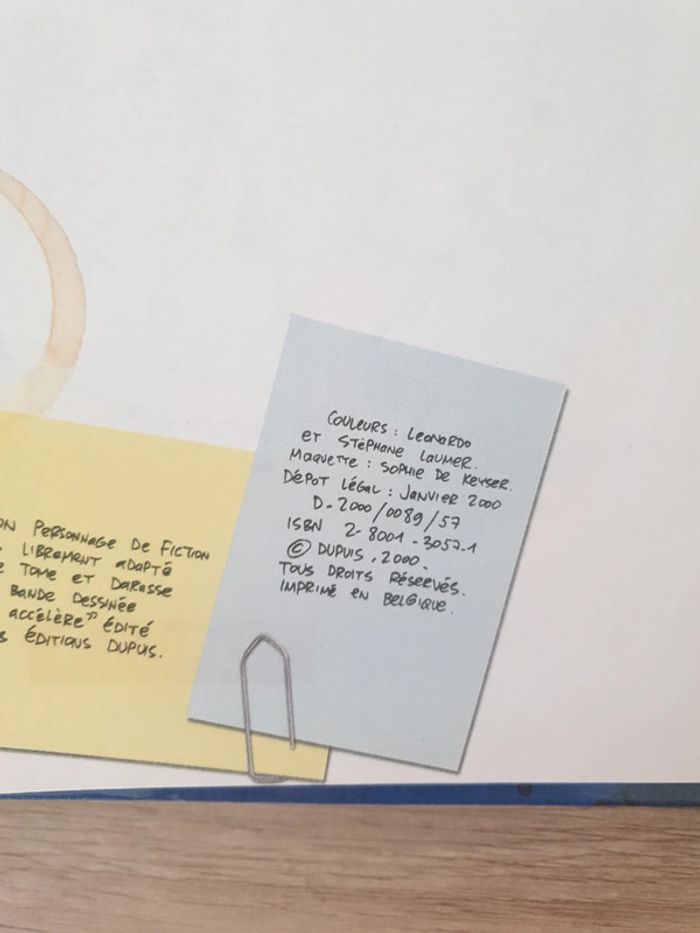 ON PERSONNAGE DE FICTION
LIBREMENT ADAPTÉ
E TOME ET DARASSE
BANDE DESSINÉE
ACCÉLÈRE" ÉDITÉ
S ÉDITIONS DUPUIS.
COULEURS : LEONARDO
ET STÉPHANE LAUMER.
MAQUETTE : SOPHIE DE KEYSER.
DÉPOT LÉGAL : JANVIER 2000
D-2000/0089/57
ISBN 2-8001-3057-1
© DUPUIS, 2000.
TOUS DROITS RÉSERVÉS.
IMPRIMÉ EN BELGIQUE.